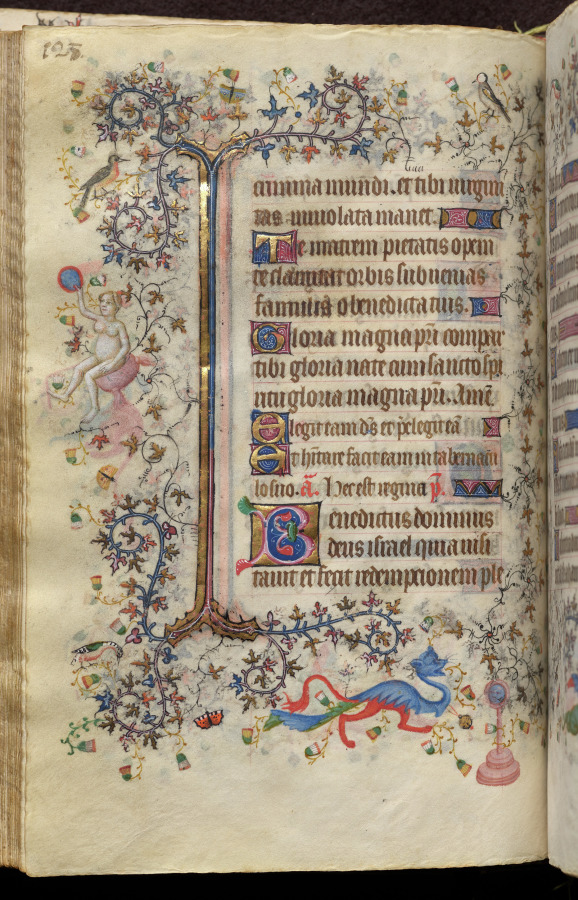 125
crimina mundi. et tibi virgini
tas inviolata manet.
Te matrem pietatis opem
te clamitat orbis subvenias
famulis o benedicta tuis.
Gloria magna pri compar
tibi gloria nate cum sancto spi
ritu gloria magna pri. Amen
Elegit eam ds et pelegit eã
Et hitare facit eam in tabernac
lo suo. a. Hec est regina p.
Benedictus dominus
deus israel quia visi
tavit et fecit redemptionem ple